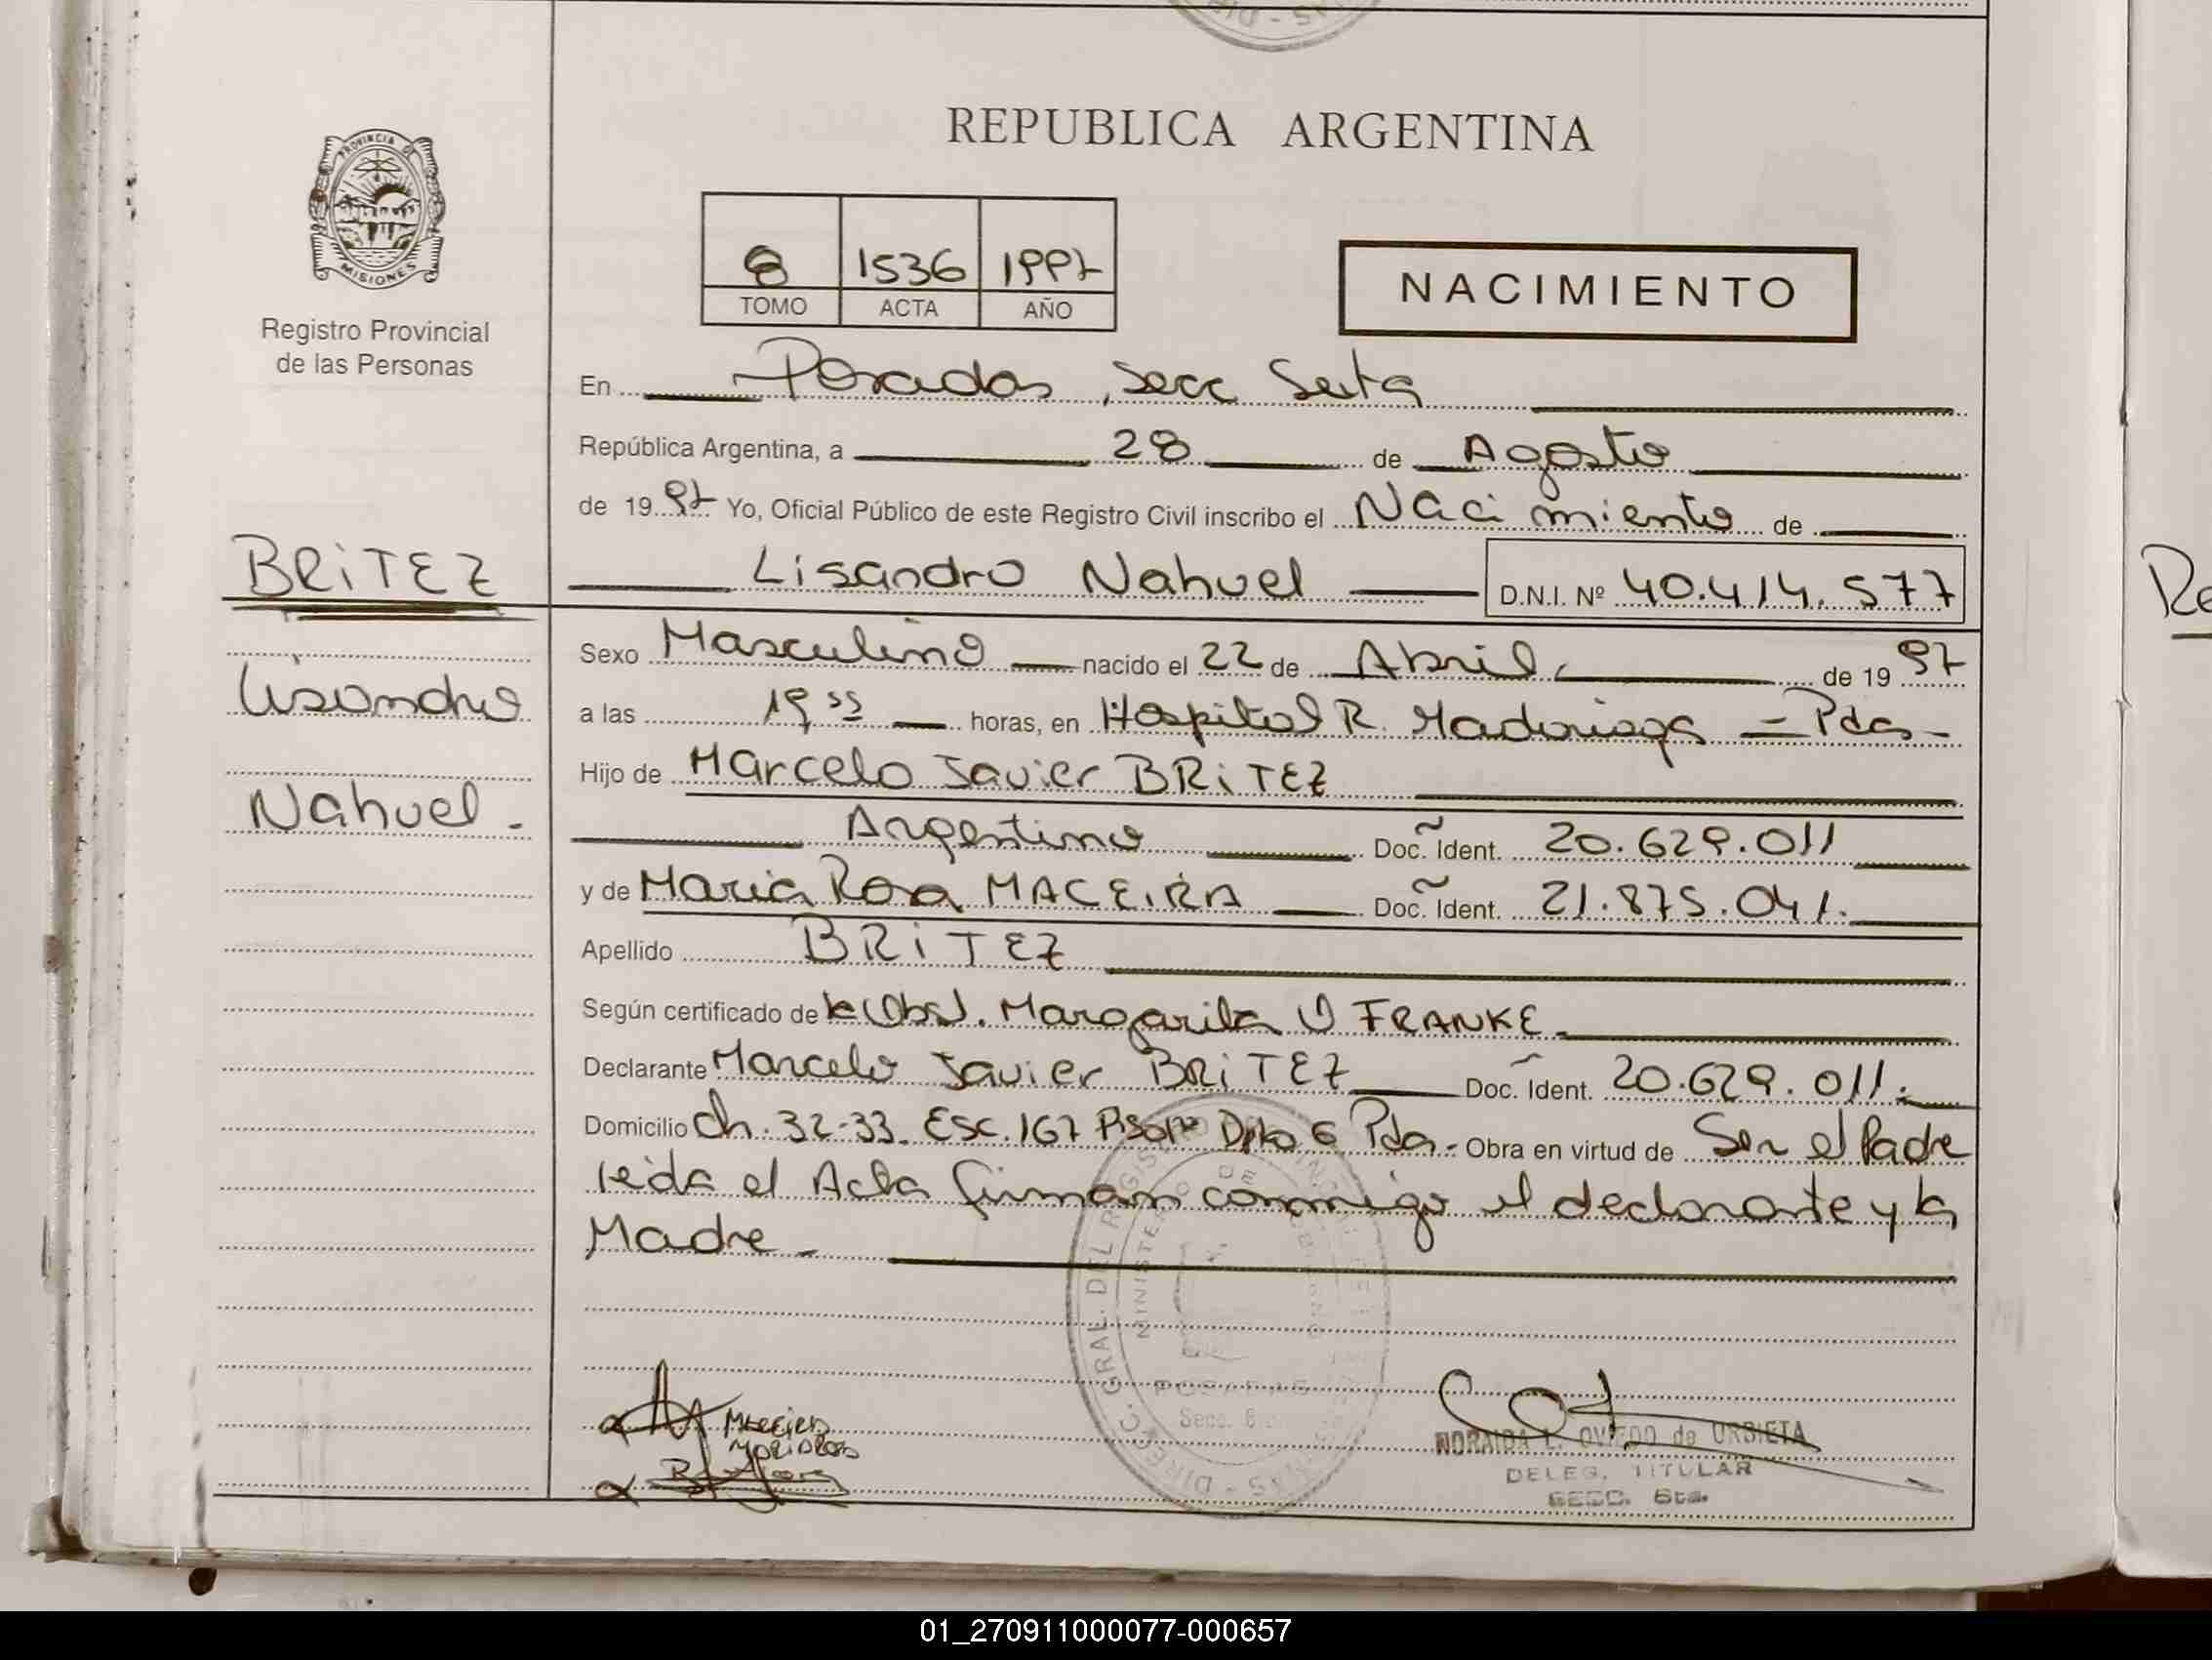 REPUBLICA ARGENTINA
PROVINCIA DE
MISIONES
Registro Provincial
de las Personas
8 1536 1997
TOMO ACTA AÑO
NACIMIENTO
En Posadas, Secc Sexta
República Argentina, a 28 de Agosto
de 1997 Yo, Oficial Público de este Registro Civil inscribo el Nacimiento de
BRiTEZ
Lisandro Nahuel D.N.I. Nº 40.414.577
Sexo Masculino nacido el 22 de Abril de 1997
Lisandro
a las 19 33 horas, en Hospital R. Madariaga = Pdas -
Hijo de Marcelo Javier BRiTEZ
Nahuel.
Argentino Doc. Ident. 20.629.011
y de Maria Rosa MACEiRA Doc. Ident. 21.875.041.
Apellido BRiTEZ
Según certificado de la Obst. Margarita FRANKE
Declarante Marcelo Javier BRiTEZ Doc. Ident. 20.629.011.
Domicilio Ch. 32-33. Esc. 167 Piso 1º Dpto 6 Pdas.- Obra en virtud de Ser el Padre
leida el Acta firman conmigo el declarante y la
Madre -
MACEIRA
MARIA ROSA
DIREC. GRAL. DEL REGISTRO
MINISTERIO DE
POSADAS
Secc. 6
NORAIDA L. OVIEDO de URBIETA
DELEG. TITULAR
SECC. 6ta.
01_270911000077-000657